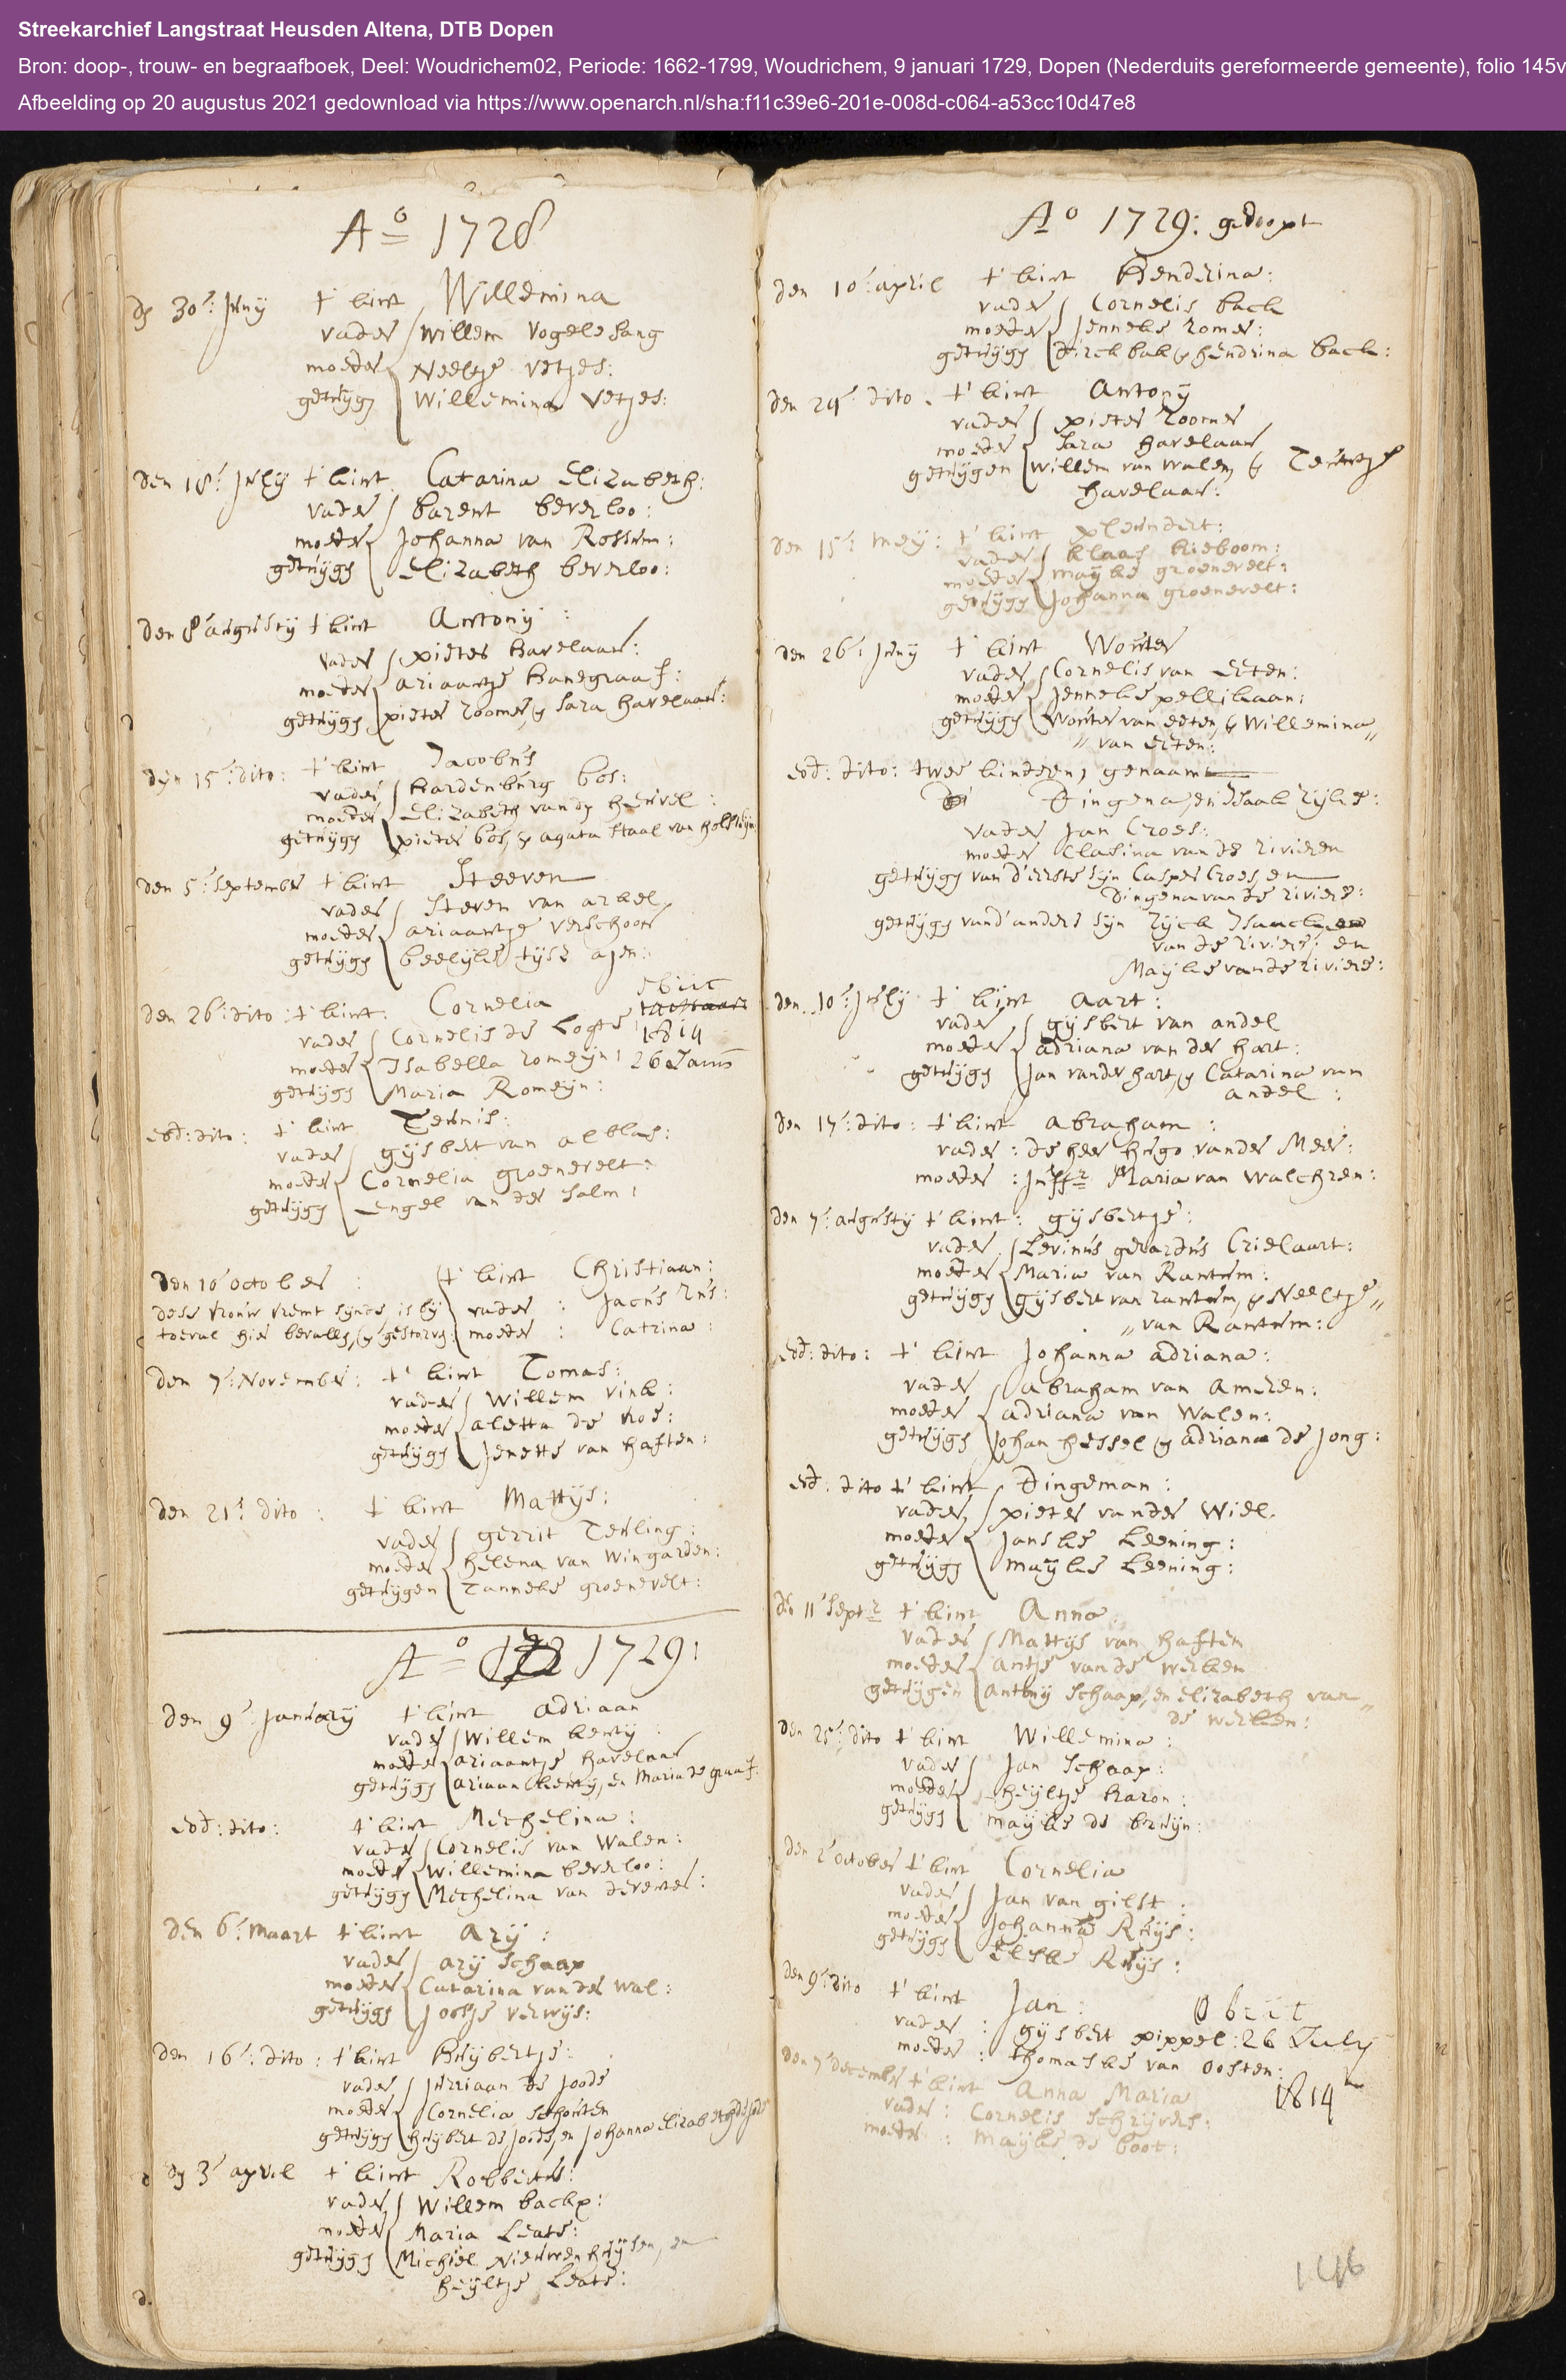 Streekarchief Langstraat Heusden Altena, DTB Dopen
Bron: doop-, trouw- en begraafboek, Deel: Woudrichem02, Periode: 1662-1799, Woudrichem, 9 januari 1729, Dopen (Nederduits gereformeerde gemeente), folio 145v
Afbeelding op 20 augustus 2021 gedownload via https://www.openarch.nl/sha:f11c39e6-201e-008d-c064-a53cc10d47e8
A° 1728
30: Juny t' kint Willemina
vader Willem Vogelesang
moeder Neeltje Vetjes:
getuijg Willemina Vetjes:
den 18: July t kint Catarina Elizabeth:
vader barent beverloo:
moeder Johanna van Rossum:
getuijg Elizabeth beverloo:
den 8 augusty t kint Antony:
vader pieter havelaar:
moeder ariaantje hanegraaf:
getuijg pieter roomer, & Sara havelaar:
den 15: dito: t' kint Jacobus
vader hardenburg bos:
moeder Elizabeth van den heuvel:
getuijg pieter bos, & agata Staal van holsteijn
den 5: September t' kint Steeven
vader Steven van arkel
moeder ariaantje verschoor
getuijg beelijke tijsz
den 26: dito: t' kint: Cornelia
vader Cornelis de Logte
moeder Isabella romeijn:
getuijg Maria Romeijn:
obiit
1814
26 Janu
eod: dito: t' kint Teunis:
vader gijsbert van alblas:
moeder Cornelia groenevelt:
getuijg Engel van der Salm:
den 10 october: t' kint Christiaan:
dese vrouw vremt synde, is by vader:
toeval hier bevallen, & gestorven: moeder: Catrina:
den 7: November: t' kint Tomas:
vader Willem vink:
moeder aletta de roe:
getuijg Jenette van haften:
den 21: dito: t' kint Mattijs:
vader gerrit Teuling:
moeder helena van Wingarden:
getuijgen Tanneke groenevelt:
A° 1729:
den 9: January t' kint adriaan
vader Willem
moeder ariaantje havelaar
getuijg ariaan en Maria de graaf:
eod: dito: t' kint Mechelina:
vader Cornelis van Walen:
moeder Willemina beverloo:
getuijg Mechelina van deventer:
den 6: Maart t' kint Ary:
vader ary Schaap
moeder Catarina van der Wal:
getuijg Jootje verwijs:
den 16: dito: t' kint Huijbertje:
vader Jurriaan de Joode
moeder Cornelia Schouten
getuijg huijbert de Joode, en Johanna Elizabeth de Jode
3 april t' kint Robbertus:
vader Willem backx:
moeder Maria Leate:
getuijg Michiel Nieuwenhuijsen, en
heijltje Leate:
A° 1729: gedoopt
den 10: april t' kint Hendrina:
vader Cornelis back
moeder Jenneke romer:
getuijg dirck bak & hendrina back:
den 24: dito. t' kint Antony
vader pieter roomer
moeder Sara havelaar
getuijgen Willem van Walen, & Teuntje
havelaar:
den 15: meij: t' kint pleundert:
vader klaas kieboom:
moeder maijke groenevelt:
getuijg Johanna groenevelt:
den 26: Juny t' kint Wouter
vader Cornelis van Eeten:
moeder Jenneke pellikaan:
getuijg Wouter van eeten, & Willemina
van Eeten:
eod: dito: twee kinderen, genaamt
Dingena, en Isaak rijke:
vader Jan Croes:
moeder Clasina van de rivieren
getuijg van d'eerste sijn Casper Croes, en
Dingena van de riviere:
getuijg vand' andere sijn rijck Isaack
van de riviere, en
Maijke van de riviere:
den 10: July t' kint aart:
vader gijsbert van andel
moeder adriana van der hart:
getuijg Jan vander hart, & Catarina van
andel:
den 17: dito: t' kint abraham:
vader: de heer hugo vander Meer:
moeder: Juffr Maria van Walchren:
den 7: augusty t' kint: gijsbertje:
vader Levinus gerardus Crielaart:
moeder Maria van Rantum:
getuijg gijsbert van rantum, & Neeltje
van Rantum:
eod: dito: t' kint Johanna adriana:
vader abraham van Ameren:
moeder adriana van Walen:
getuijg Johan hessel & adriana de Jong:
eod: dito t' kint Dingeman:
vader pieter vander Wiel.
moeder Janske Leening:
getuijg maijke Leening:
den 11 Septr t' kint Anna:
vader Mattijs van haften
moeder antje van de werken
getuijgen antony Schaap, en Elizabeth van
de werken:
den 25: dito t' kint Willemina:
vader Jan Schaap:
moeder heijltje haron:
getuijg maijke de bruijn:
den 2 october t' kint Cornelia
vader Jan van gilst:
moeder Johanna Ruijs:
getuijg Elske Ruijs:
den 9: dito t' kint Jan:
vader: gijsbert pippel:
moeder: thomaske van oosten:
Obiit
26 July
1814
den 7 december t' kint Anna Maria
vader: Cornelis Schrijvers:
moeder: Maijke de boot:
146